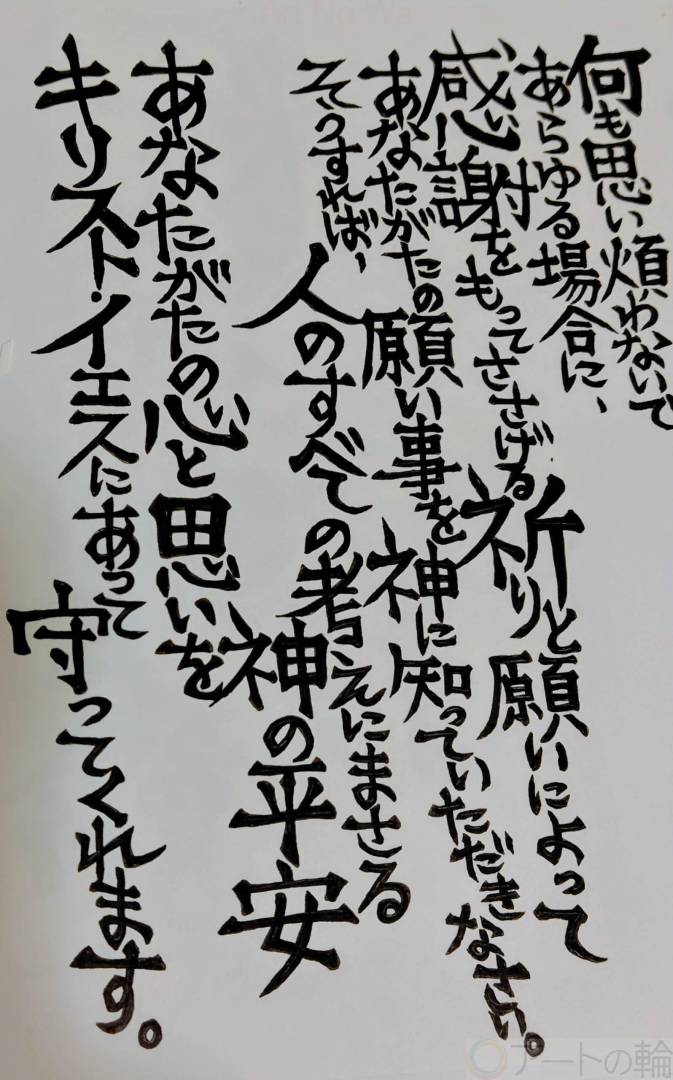 何も思い煩わないで
あらゆる場合に、
感謝をもってささげる祈りと願いによって
あなたがたの願い事を神に知っていただきなさい。
そうすれば、
人のすべての考えにまさる
神の平安
あなたがたの心と思いを
キリスト・イエスにあって守ってくれます。
アートの輪